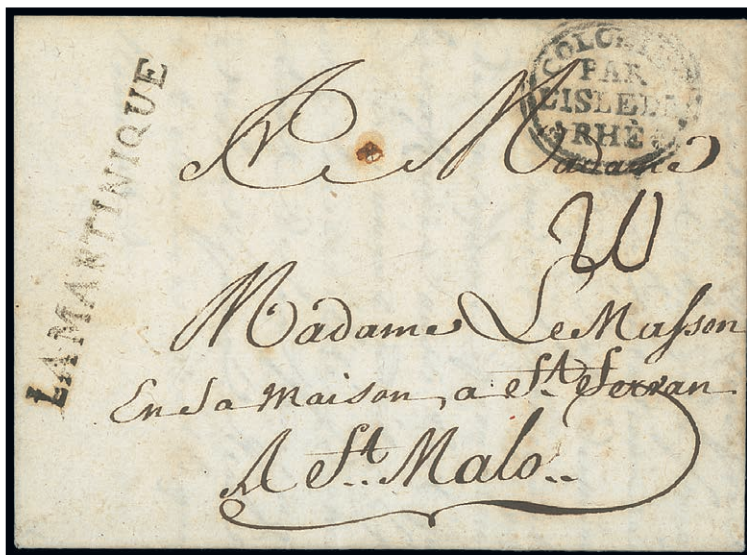 LA MARTINIQUE
COLONIES
PAR
L'ISLE DE
RHÈ
A Madame
20
Madame Le Masson
En sa maison, a St. Servan
A St. Malo..